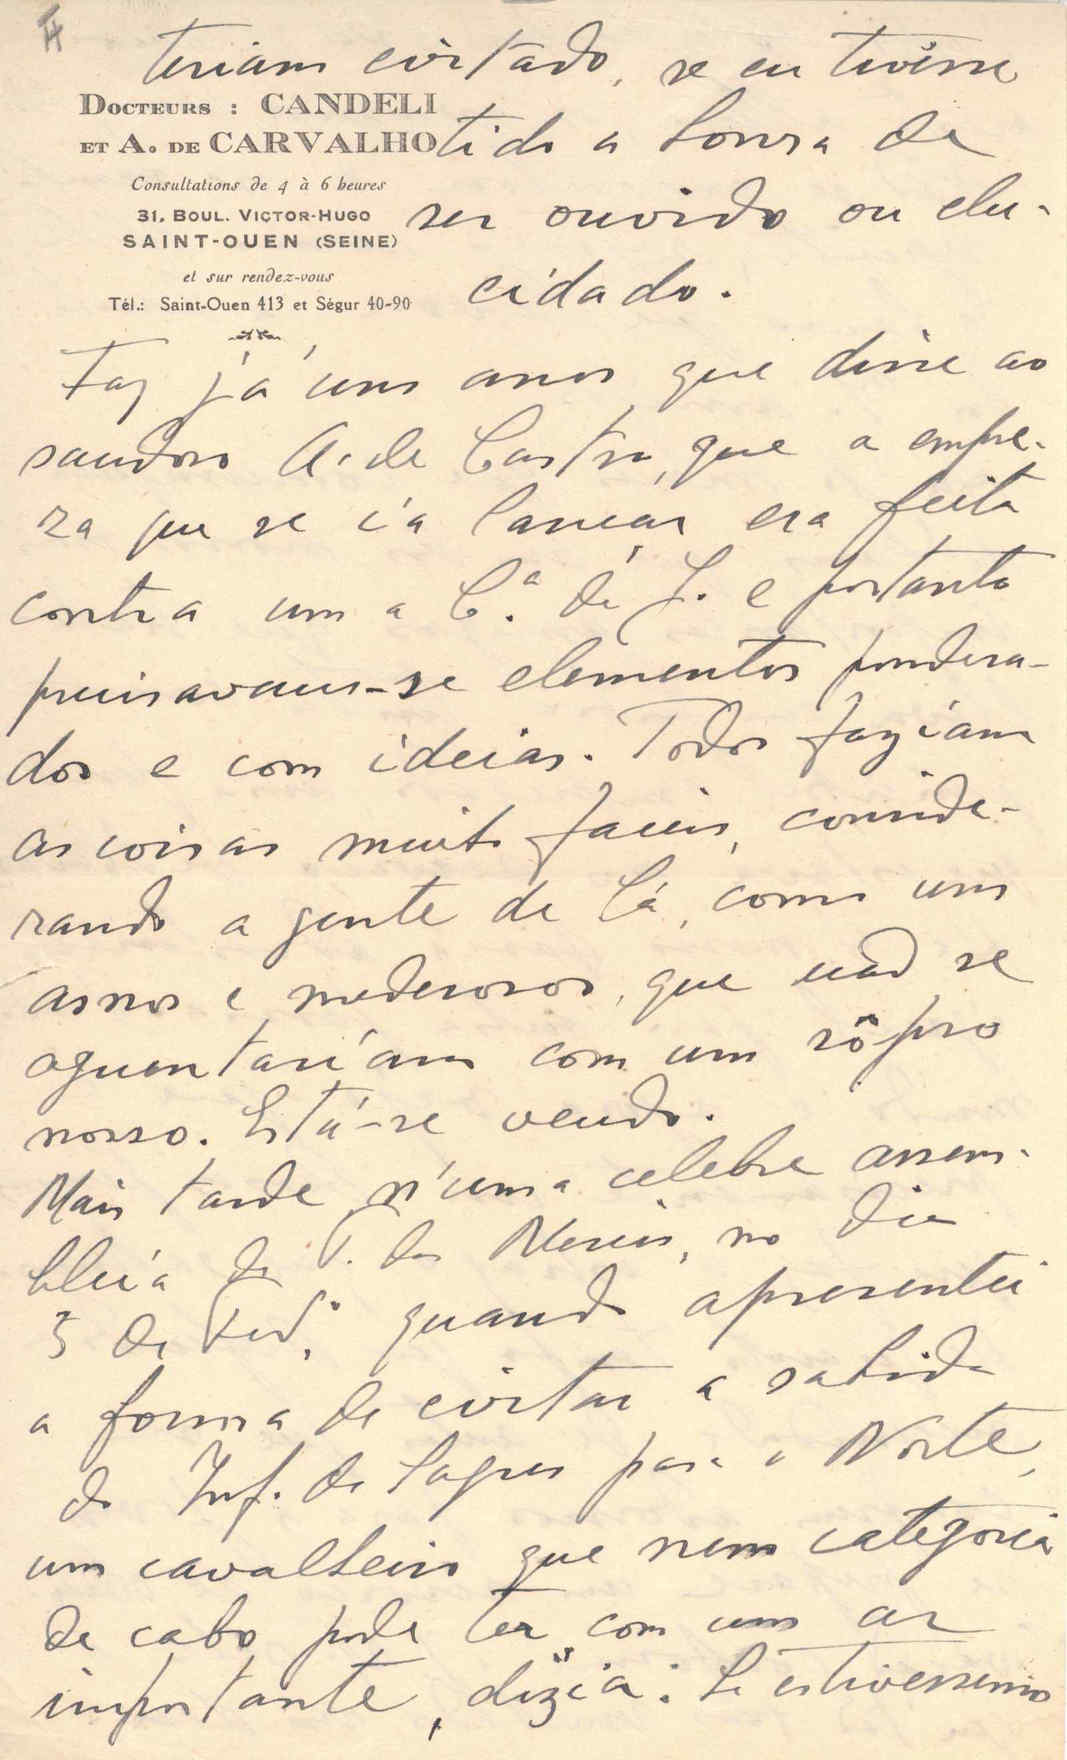 II
teriam evitado, se eu tivésse
DOCTEURS : CANDELI
ET A. DE CARVALHO
Consultations de 4 à 6 heures
31, BOUL. VICTOR-HUGO
SAINT-OUEN (SEINE)
et sur rendez-vous
Tél.: Saint-Ouen 413 et Ségur 40-90
tido a honra de
ser ouvido ou elu-
cidado.
Faz já uns anos que disse ao
saudoso A. de Castro, que a empre-
za que se ía lançar era feita
contra uma C.ª de J. e portanto
precisavam-se elementos pondera-
dos e com ideias. Todos fazíam
as coisas muito faceis, conside-
rando a gente de lá, como uns
asnos e medrosos, que não se
aguentaríam com um sôpro
nosso. Está-se vendo.
Mais tarde n'uma celebre assem-
bleía de T. das Merces, no dia
3 de Fev.º, quando apresentei
a forma de evitar a sahida
do Inf. de Sagres para o Norte,
um cavalheiro que nem categoria
de cabo pode ter, com um ar
importante, dizia: Se estivessemos